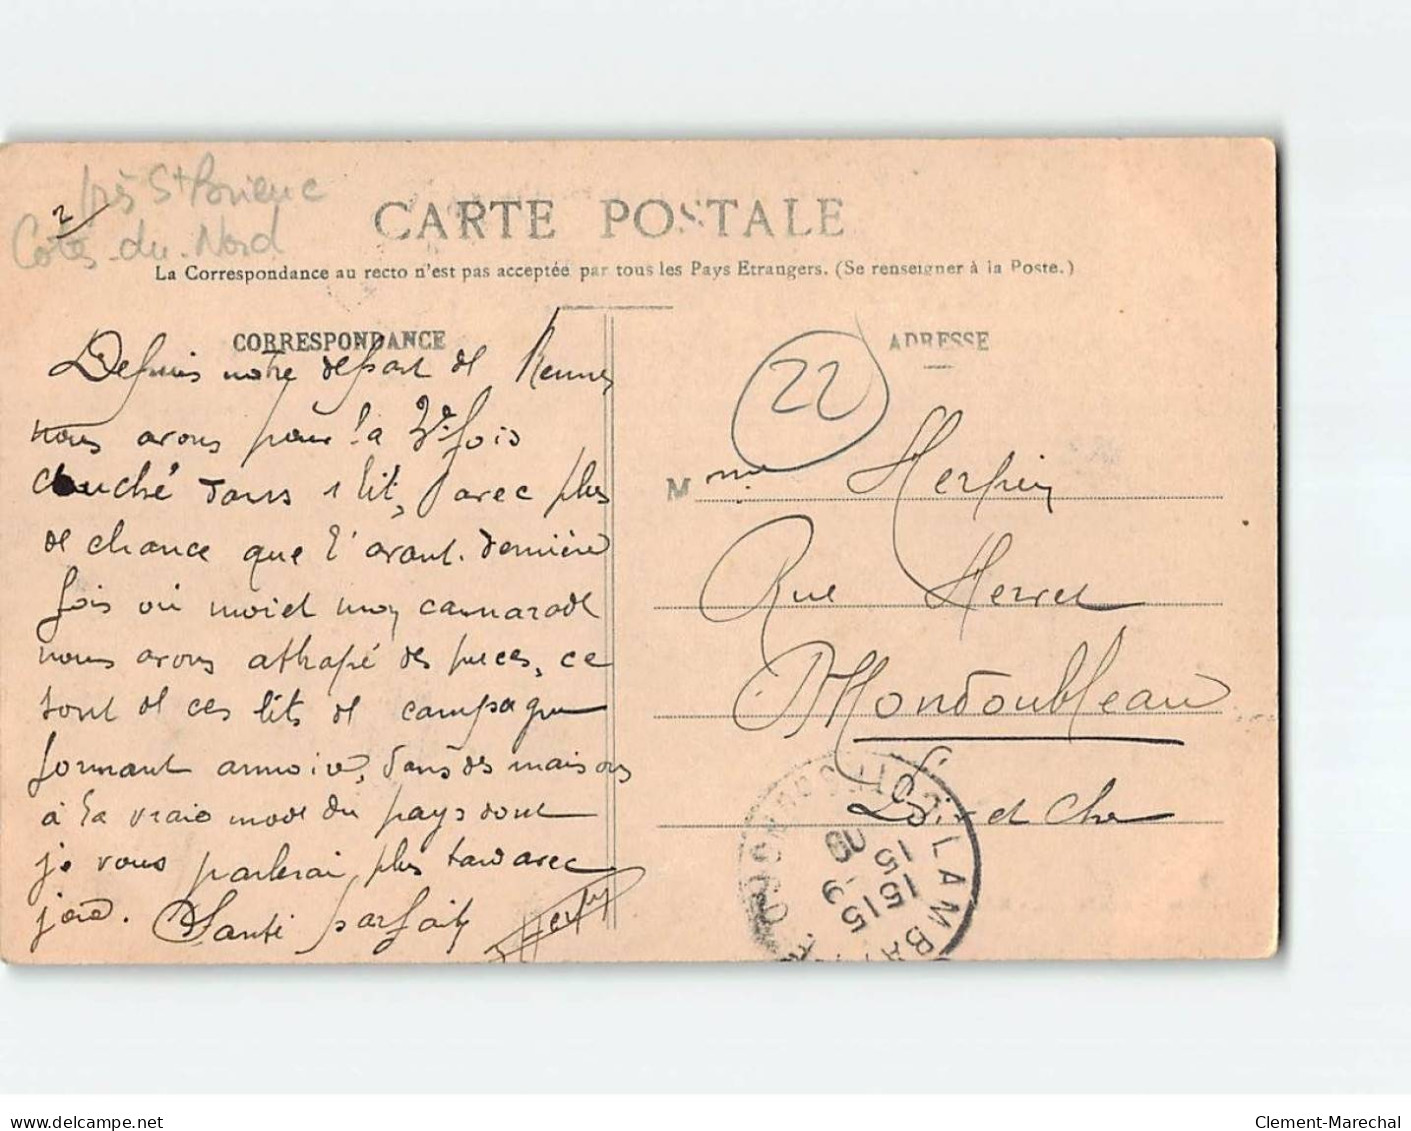 près St Brieuc
2
Côtes-du-Nord
CARTE POSTALE
La Correspondance au recto n'est pas acceptée par tous les Pays Etrangers. (Se renseigner à la Poste.)
CORRESPONDANCE
Depuis notre départ de Rennes
nous avons pour la 3e fois
couché dans 1 lit, avec plus
de chance que l'avant-dernière
fois où moi et mon camarade
nous avons attrapé des puces, ce
sont de ces lits de campagne
formant armoire, dans des maisons
à la vraie mode du pays dont
je vous parlerai plus tard avec
joie. Santé parfaite
ADRESSE
22
Mme Herpin
Rue Hervet
Mondoubleau
Loir et Cher
LAMBALLE COTES-DU-NORD
1515
15 -9
09
www.delcampe.net
Clement-Marechal